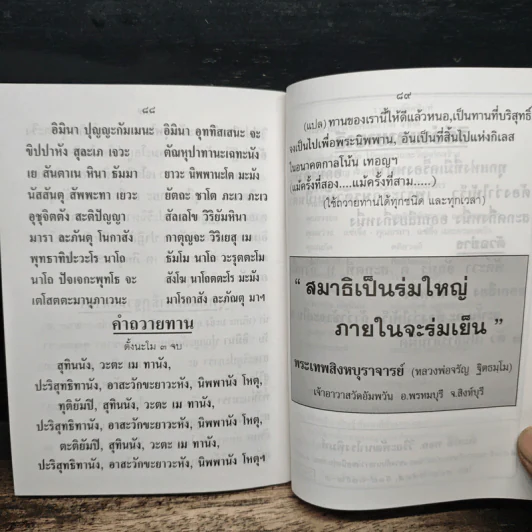 ๘๘
อิมินา ปุญญะกัมเมนะ อิมินา อุททิสเสนะ จะ
ขิปปาหัง สุละเภ เจวะ ตัณหุปาทานะเฉทะนัง
เย สันตาเน หินา ธัมมา ยาวะ นิพพานะโต มะมัง
นัสสันตุ สัพพะทา เยวะ ยัตถะ ชาโต ภะเว ภะเว
อุชุจิตตัง สะติปัญญา สัลเลโข วิริยัมหินา
มารา ละภันตุ โนกาสัง กาตุญจะ วิริเยสุ เม
พุทธาทิปะวะโร นาโถ ธัมโม นาโถ วะรุตตะโม
นาโถ ปัจเจกะพุทโธ จะ สังโฆ นาโถตตะโร มะมัง
เตโสตตะมานุภาเวนะ มาโรกาสัง ละภันตุ มาฯ
คำถวายทาน
ตั้งนะโม ๓ จบ
สุทินนัง, วะตะ เม ทานัง,
ปะริสุทธิทานัง, อาสะวักขะยาวะหัง, นิพพานัง โหตุ,
ทุติยัมปิ, สุทินนัง, วะตะ เม ทานัง,
ปะริสุทธิทานัง, อาสะวักขะยาวะหัง, นิพพานัง โหตุ,
ตะติยัมปิ, สุทินนัง, วะตะ เม ทานัง,
ปะริสุทธิทานัง, อาสะวักขะยาวะหัง, นิพพานัง โหตุฯ
๘๙
(แปล) ทานของเรานี้ให้ดีแล้วหนอ,เป็นทานที่บริสุทธิ์
จงเป็นไปเพื่อพระนิพพาน, อันเป็นที่สิ้นไปแห่งกิเลส
ในอนาคตกาลโน้น เทอญฯ
(แม้ครั้งที่สอง....แม้ครั้งที่สาม......)
(ใช้ถวายทานได้ทุกชนิด และทุกเวลา)
“ สมาธิเป็นร่มใหญ่
ภายในจะร่มเย็น ”
พระเทพสิงหบุราจารย์ (หลวงพ่อจรัญ ฐิตธมฺโม)
เจ้าอาวาสวัดอัมพวัน อ.พรหมบุรี จ.สิงห์บุรี